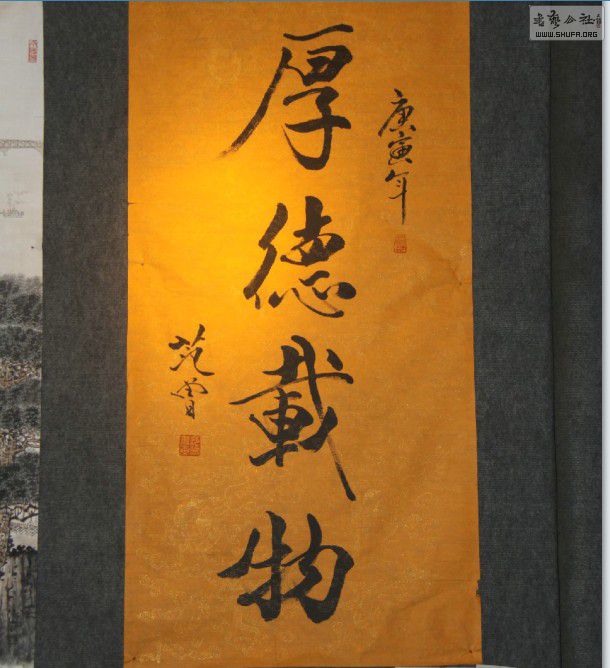 庚寅年
厚德載物
范曾
書藝公社
WWW.SHUFA.ORG